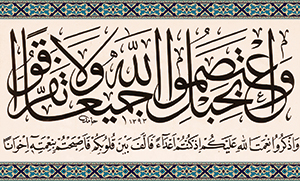 وَاعْتَصِمُوا بِحَبْلِ اللّٰهِ جَمِيعًا وَلَا تَفَرَّقُوا
١٣٩٣
وَاذْكُرُوا نِعْمَتَ اللّٰهِ عَلَيْكُمْ إِذْ كُنْتُمْ أَعْدَاءً فَأَلَّفَ بَيْنَ قُلُوبِكُمْ فَأَصْبَحْتُمْ بِنِعْمَتِهِ إِخْوَانًا